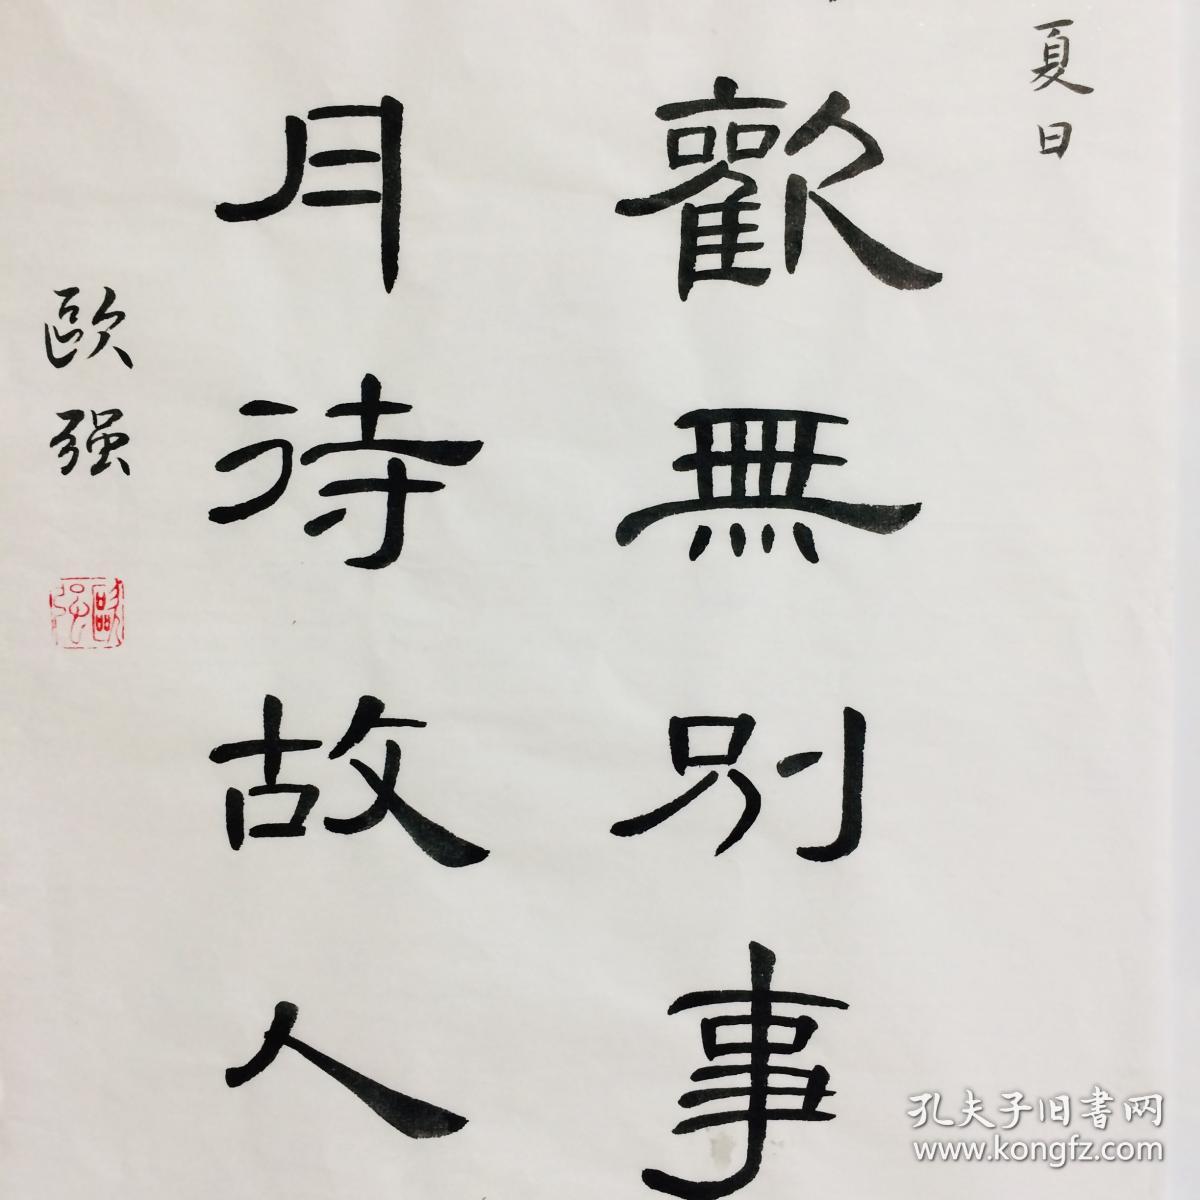 夏日
歡無別事
月待故人
歐强
歐强
孔夫子旧書网
www.kongfz.com